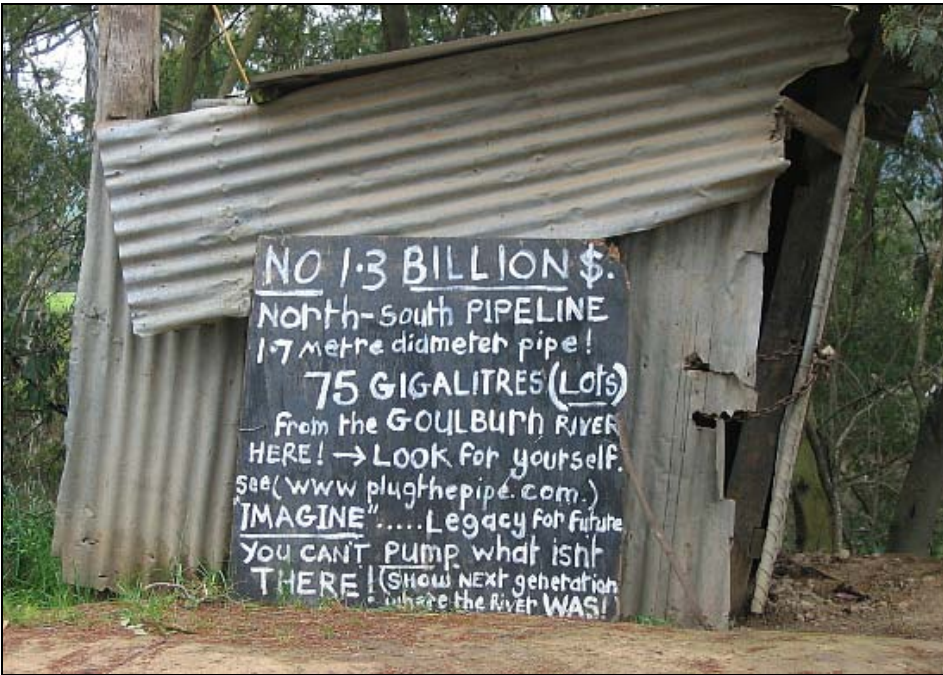 NO 1.3 BILLION $.
North-south PIPELINE
1.7 metre diameter pipe!
75 GIGALITRES (Lots)
From the GOULBURN RIVER
HERE! → Look for yourself.
see (www plugthepipe.com.)
"IMAGINE"..... Legacy for Future
YOU CAN'T Pump what isnt
THERE! (SHOW NEXt generation
where the River WAS!)